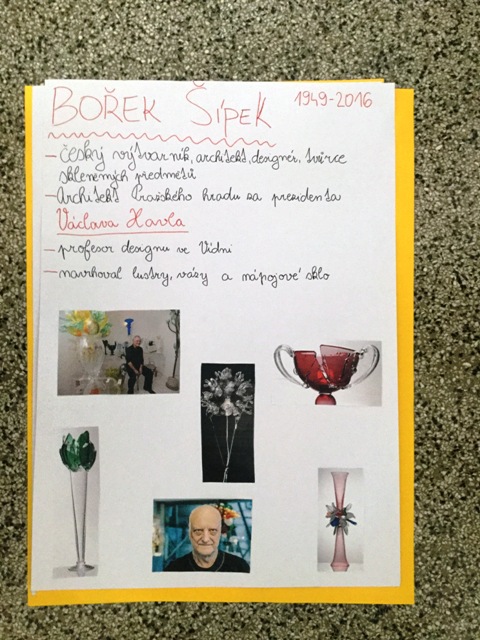 BOŘEK ŠÍPEK 1949-2016
- český výtvarník, architekt, designér, tvůrce
skleněných předmětů
- Architekt Pražského hradu za presidenta
Václava Havla
- profesor designu ve Vídni
- navrhoval lustry, vázy a nápojové sklo